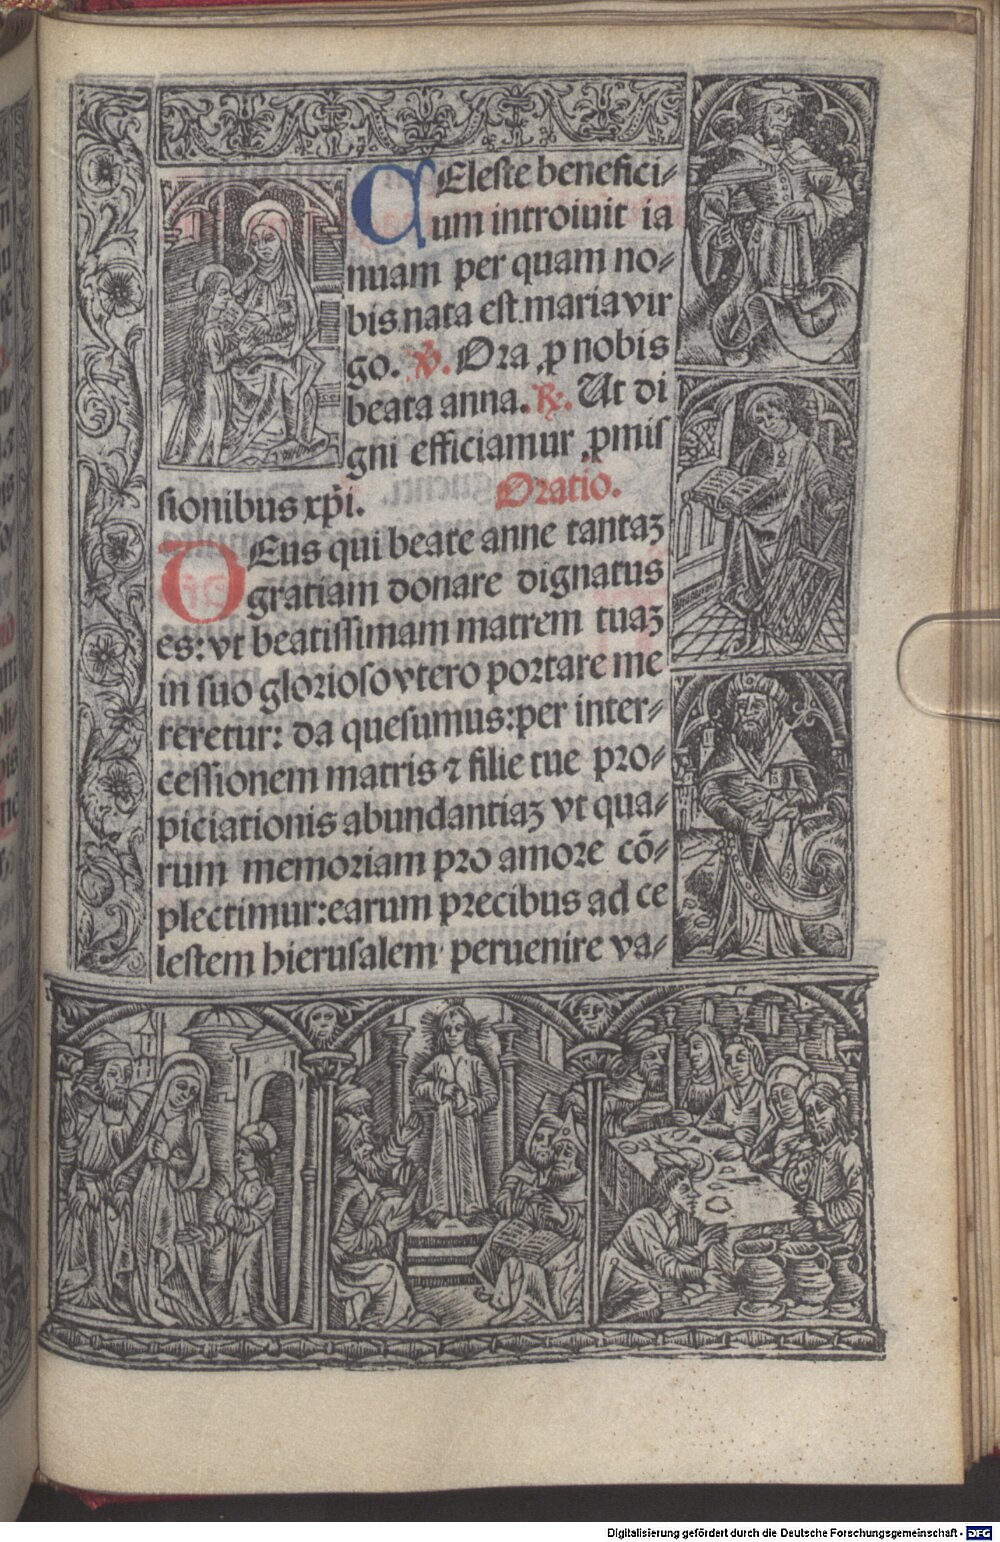 CEleste benefici-
um introiuit ia
nuam per quam no-
bis nata est maria vir
go. ℣. Ora ꝓ nobis
beata anna. ℟. Ut di
gni efficiamur ꝓmiſ
ſionibus xp̄i. Oratio.
DEus qui beate anne tantaꝫ
gratiam donare dignatus
es: vt beatiſſimam matrem tuaꝫ
in ſuo glorioſo vtero portare me
reretur: da queſumus: per inter-
ceſſionem matris ⁊ filie tue pro-
piciationis abundantiaꝫ vt qua-
rum memoriam pro amore cō-
plectimur: earum precibus ad ce
leſtem hieruſalem peruenire va-
Digitalisierung gefördert durch die Deutsche Forschungsgemeinschaft - DFG